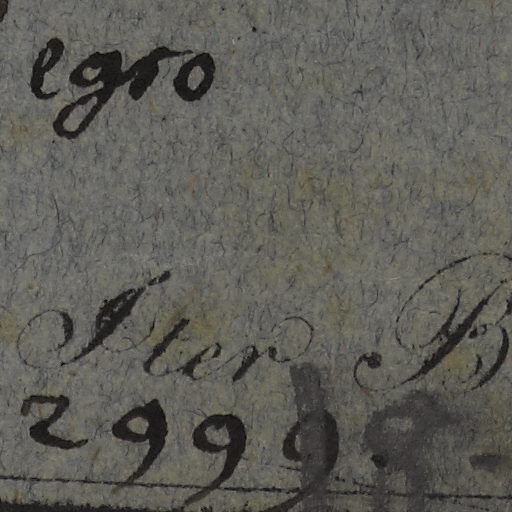 egro
Ster B
2999.